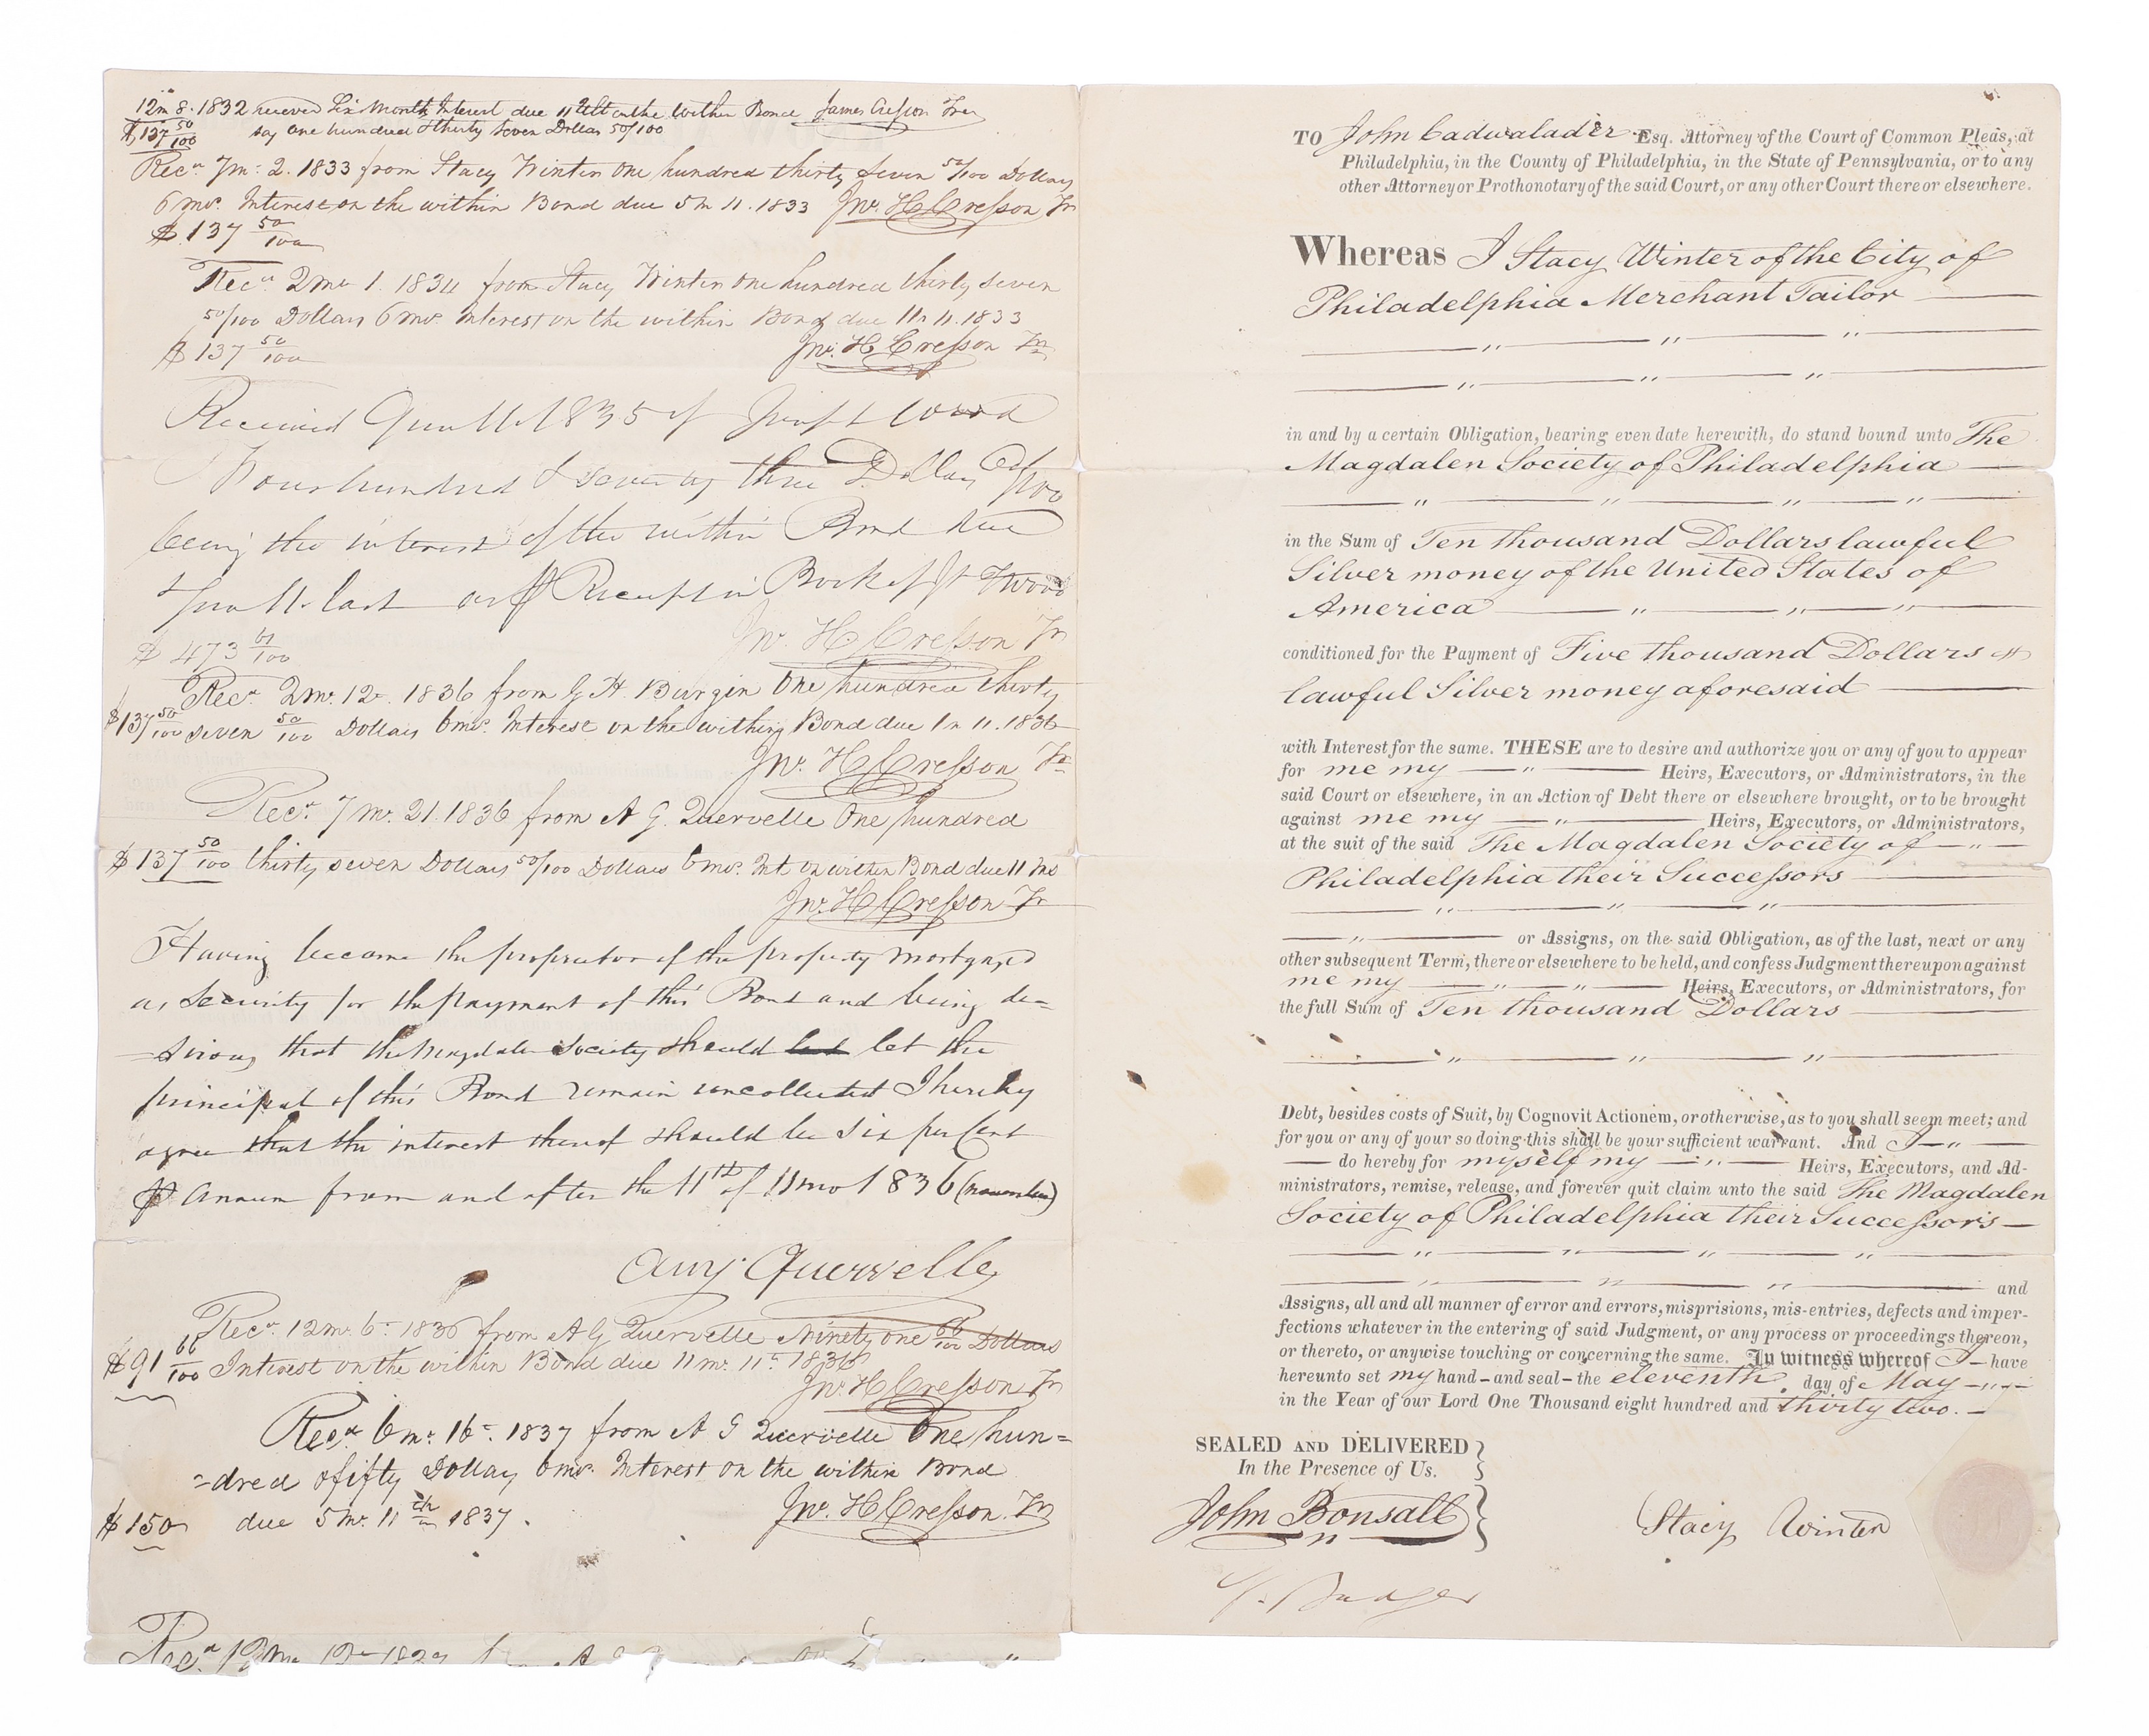 12m 8. 1832 received Six Months Interest due 11 Ult on the Within Bond James Cresson Trea
$137 50/100 say One hundred & thirty Seven Dollars 50/100
Recd 7mo. 2. 1833 from Stacy Winter One hundred thirty seven 50/100 Dollars
6 mos. Interest on the within Bond due 5m 11. 1833 Jno. H Cresson Tr
$137 50/100
Recd 2mo 1. 1834 from Stacy Winter One hundred thirty seven
50/100 Dollars 6 mos. Interest on the within Bond due 11m 11. 1833
$137 50/100 Jno. H Cresson Tr
Received 1835 of Wood
Four hundred & seventy three Dollars /100
being the interest of the within Bond due
last as Receipt in Book of Wood
$473 /100 Jno. H Cresson Tr
Recd 2mo. 12. 1836 from G H. Burgin One hundred thirty
$137 50/100 seven 50/100 Dollars 6mos. Interest on the within Bond due 11. 1836
Jno. H Cresson Tr
Recd. 7 mo. 21. 1836 from A G. Quervelle One hundred
$137 50/100 thirty seven Dollars 50/100 Dollars 6 mos. Int on within Bond due 11
Jno. H Cresson Tr
Having become the proprietor of the property mortgaged
as Security for the payment of this Bond and being de=
=sirous that the Magdalen Society should let let the
principal of this Bond remain uncollected I hereby
agree that the interest thereof should be six per Cent
P Annum from and after the 11th of 11mo 1836 (november)
Anty Quervelle
Recd. 12mo. 6. 1836 from A G Quervelle Ninety one 66/100 Dollars
$91 66/100 Interest on the within Bond due 11 mo. 11. 1836
Jno. H Cresson Tr
Recd. 6mo. 16. 1837 from A G Quervelle One hun=
=dred & fifty Dollars 6mos. Interest on the within Bond
$150 due 5 mo. 11th 1837. Jno. H Cresson. Tr
Recd.
TO John Cadwalader Esq. Attorney of the Court of Common Pleas, at
Philadelphia, in the County of Philadelphia, in the State of Pennsylvania, or to any
other Attorney or Prothonotary of the said Court, or any other Court there or elsewhere.
Whereas I Stacy Winter of the City of
Philadelphia Merchant Tailor
in and by a certain Obligation, bearing even date herewith, do stand bound unto The
Magdalen Society of Philadelphia
in the Sum of Ten thousand Dollars lawful
Silver money of the United States of
America
conditioned for the Payment of Five thousand Dollars
lawful Silver money aforesaid
with Interest for the same. THESE are to desire and authorize you or any of you to appear
for me my Heirs, Executors, or Administrators, in the
said Court or elsewhere, in an Action of Debt there or elsewhere brought, or to be brought
against me my Heirs, Executors, or Administrators,
at the suit of the said The Magdalen Society of
Philadelphia their Successors
or Assigns, on the said Obligation, as of the last, next or any
other subsequent Term, there or elsewhere to be held, and confess Judgment thereupon against
me my Heirs, Executors, or Administrators, for
the full Sum of Ten thousand Dollars
Debt, besides costs of Suit, by Cognovit Actionem, or otherwise, as to you shall seem meet; and
for you or any of your so doing this shall be your sufficient warrant. And I
do hereby for myself my Heirs, Executors, and Ad-
ministrators, remise, release, and forever quit claim unto the said The Magdalen
Society of Philadelphia their Successors
and
Assigns, all and all manner of error and errors, misprisions, mis-entries, defects and imper-
fections whatever in the entering of said Judgment, or any process or proceedings thereon,
or thereto, or anywise touching or concerning the same. In witness whereof I have
hereunto set my hand and seal the eleventh day of May
in the Year of our Lord One Thousand eight hundred and thirty two.
SEALED AND DELIVERED
In the Presence of Us.
John Bonsall
Stacy Winter
Badger